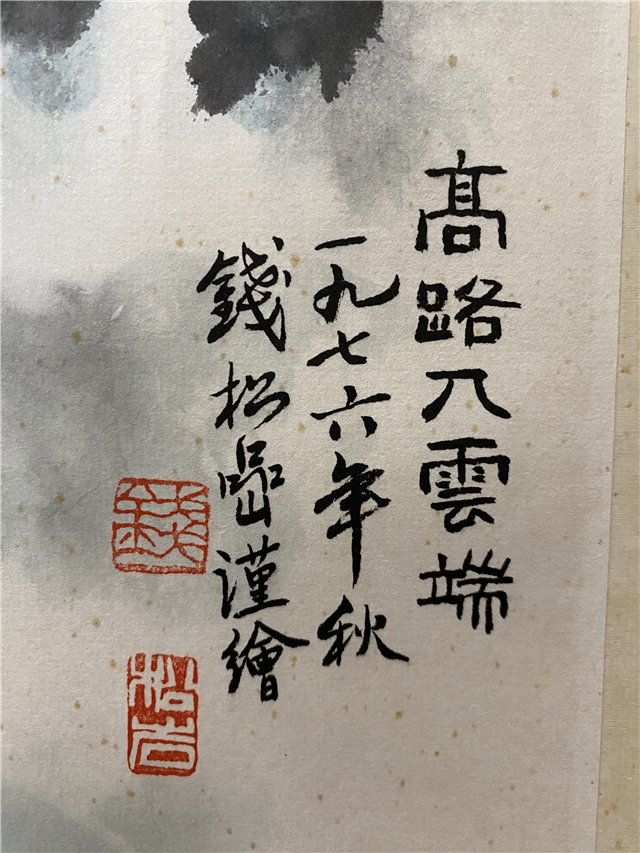 高路入雲端
一九七六年秋
錢松嵒謹繪
錢
松嵒